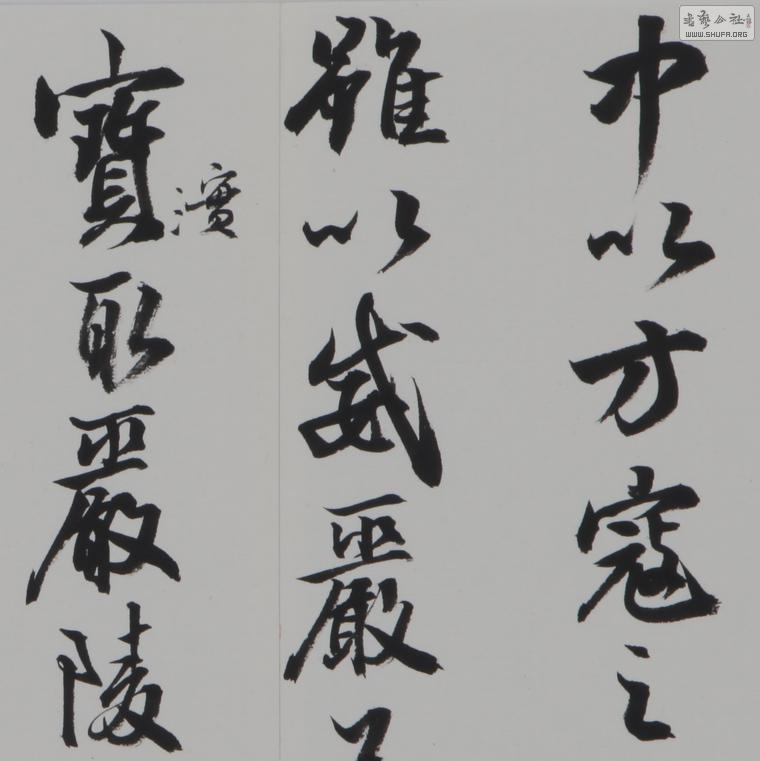 中以方寇之
雖以威嚴
實取嚴陵
書藝公社
WWW.SHUFA.ORG